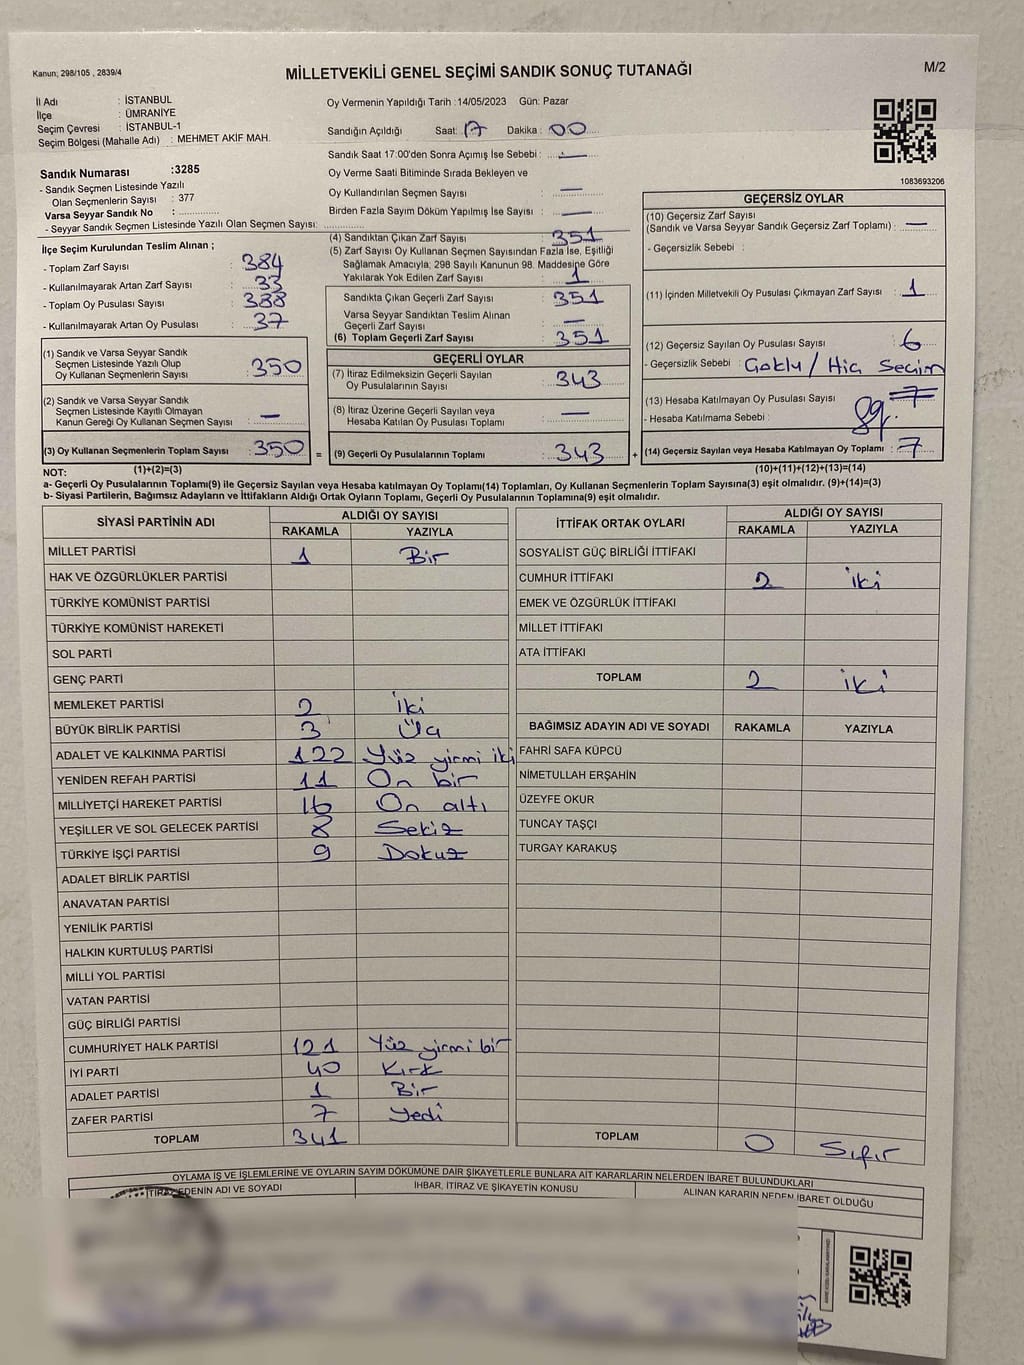 Kanun; 298/105 , 2839/4
MİLLETVEKİLİ GENEL SEÇİMİ SANDIK SONUÇ TUTANAĞI
M/2
İl Adı : İSTANBUL
İlçe : ÜMRANİYE
Seçim Çevresi : İSTANBUL-1
Seçim Bölgesi (Mahalle Adı) : MEHMET AKİF MAH.
Oy Vermenin Yapıldığı Tarih :14/05/2023 Gün: Pazar
Sandığın Açıldığı Saat: 17 Dakika : 00
Sandık Saat 17:00'den Sonra Açımış İse Sebebi : —
Oy Verme Saati Bitiminde Sırada Bekleyen ve
Oy Kullandırılan Seçmen Sayısı —
Birden Fazla Sayım Döküm Yapılmış İse Sayısı : —
1083693206
Sandık Numarası :3285
- Sandık Seçmen Listesinde Yazılı
Olan Seçmenlerin Sayısı : 377
Varsa Seyyar Sandık No : ..............
- Seyyar Sandık Seçmen Listesinde Yazılı Olan Seçmen Sayısı: ..............
İlçe Seçim Kurulundan Teslim Alınan ;
- Toplam Zarf Sayısı : 384
- Kullanılmayarak Artan Zarf Sayısı : 33
- Toplam Oy Pusulası Sayısı : 388
- Kullanılmayarak Artan Oy Pusulası : 37
(1) Sandık ve Varsa Seyyar Sandık
Seçmen Listesinde Yazılı Olup
Oy Kullanan Seçmenlerin Sayısı : 350
(2) Sandık ve Varsa Seyyar Sandık
Seçmen Listesinde Kayıtlı Olmayan
Kanun Gereği Oy Kullanan Seçmen Sayısı : —
(3) Oy Kullanan Seçmenlerin Toplam Sayısı : 350
(4) Sandıktan Çıkan Zarf Sayısı : 351
(5) Zarf Sayısı Oy Kullanan Seçmen Sayısından Fazla İse, Eşitliği
Sağlamak Amacıyla; 298 Sayılı Kanunun 98. Maddesine Göre
Yakılarak Yok Edilen Zarf Sayısı : 1
Sandıkta Çıkan Geçerli Zarf Sayısı : 351
Varsa Seyyar Sandıktan Teslim Alınan
Geçerli Zarf Sayısı : —
(6) Toplam Geçerli Zarf Sayısı : 351
GEÇERLİ OYLAR
(7) İtiraz Edilmeksizin Geçerli Sayılan
Oy Pusulalarının Sayısı : 343
(8) İtiraz Üzerine Geçerli Sayılan veya
Hesaba Katılan Oy Pusulaları Toplamı : —
= (9) Geçerli Oy Pusulalarının Toplamı : 343
GEÇERSİZ OYLAR
(10) Geçersiz Zarf Sayısı
(Sandık ve Varsa Seyyar Sandık Geçersiz Zarf Toplamı) : —
- Geçersizlik Sebebi :
(11) İçinden Milletvekili Oy Pusulası Çıkmayan Zarf Sayısı : 1
(12) Geçersiz Sayılan Oy Pusulası Sayısı : 6
- Geçersizlik Sebebi : Çoklu / Hiç Seçim
(13) Hesaba Katılmayan Oy Pusulası Sayısı : 7
- Hesaba Katılmama Sebebi :
+ (14) Geçersiz Sayılan veya Hesaba Katılmayan Oy Toplamı : 7
NOT: (1)+(2)=(3) (10)+(11)+(12)+(13)=(14)
a- Geçerli Oy Pusulalarının Toplamı(9) ile Geçersiz Sayılan veya Hesaba Katılmayan Oy Toplamı(14) Toplamları, Oy Kullanan Seçmenlerin Toplam Sayısına(3) eşit olmalıdır. (9)+(14)=(3)
b- Siyasi Partilerin, Bağımsız Adayların ve İttifakların Aldığı Ortak Oyların Toplamı, Geçerli Oy Pusulalarının Toplamına(9) eşit olmalıdır.
SİYASİ PARTİNİN ADI ALDIĞI OY SAYISI
RAKAMLA YAZIYLA
MİLLET PARTİSİ 1 Bir
HAK VE ÖZGÜRLÜKLER PARTİSİ
TÜRKİYE KOMÜNİST PARTİSİ
TÜRKİYE KOMÜNİST HAREKETİ
SOL PARTİ
GENÇ PARTİ
MEMLEKET PARTİSİ 2 İki
BÜYÜK BİRLİK PARTİSİ 3 Üç
ADALET VE KALKINMA PARTİSİ 122 Yüz yirmi iki
YENİDEN REFAH PARTİSİ 11 On bir
MİLLİYETÇİ HAREKET PARTİSİ 16 On altı
YEŞİLLER VE SOL GELECEK PARTİSİ 8 Sekiz
TÜRKİYE İŞÇİ PARTİSİ 9 Dokuz
ADALET BİRLİK PARTİSİ
ANAVATAN PARTİSİ
YENİLİK PARTİSİ
HALKIN KURTULUŞ PARTİSİ
MİLLİ YOL PARTİSİ
VATAN PARTİSİ
GÜÇ BİRLİĞİ PARTİSİ
CUMHURİYET HALK PARTİSİ 121 Yüz yirmi bir
İYİ PARTİ 40 Kırk
ADALET PARTİSİ 1 Bir
ZAFER PARTİSİ 7 Yedi
TOPLAM 341
İTTİFAK ORTAK OYLARI ALDIĞI OY SAYISI
RAKAMLA YAZIYLA
SOSYALİST GÜÇ BİRLİĞİ İTTİFAKI
CUMHUR İTTİFAKI 2 İki
EMEK VE ÖZGÜRLÜK İTTİFAKI
MİLLET İTTİFAKI
ATA İTTİFAKI
TOPLAM 2 İki
BAĞIMSIZ ADAYIN ADI VE SOYADI RAKAMLA YAZIYLA
FAHRİ SAFA KÜPCÜ
NİMETULLAH ERŞAHİN
ÜZEYFE OKUR
TUNCAY TAŞÇI
TURGAY KARAKUŞ
TOPLAM 0 Sıfır
OYLAMA İŞ VE İŞLEMLERİNE VE OYLARIN SAYIM DÖKÜMÜNE DAİR ŞİKAYETLERLE BUNLARA AİT KARARLARIN NELERDEN İBARET BULUNDUKLARI
İTİRAZ EDENİN ADI VE SOYADI İHBAR, İTİRAZ VE ŞİKAYETİN KONUSU ALINAN KARARIN NEDEN İBARET OLDUĞU